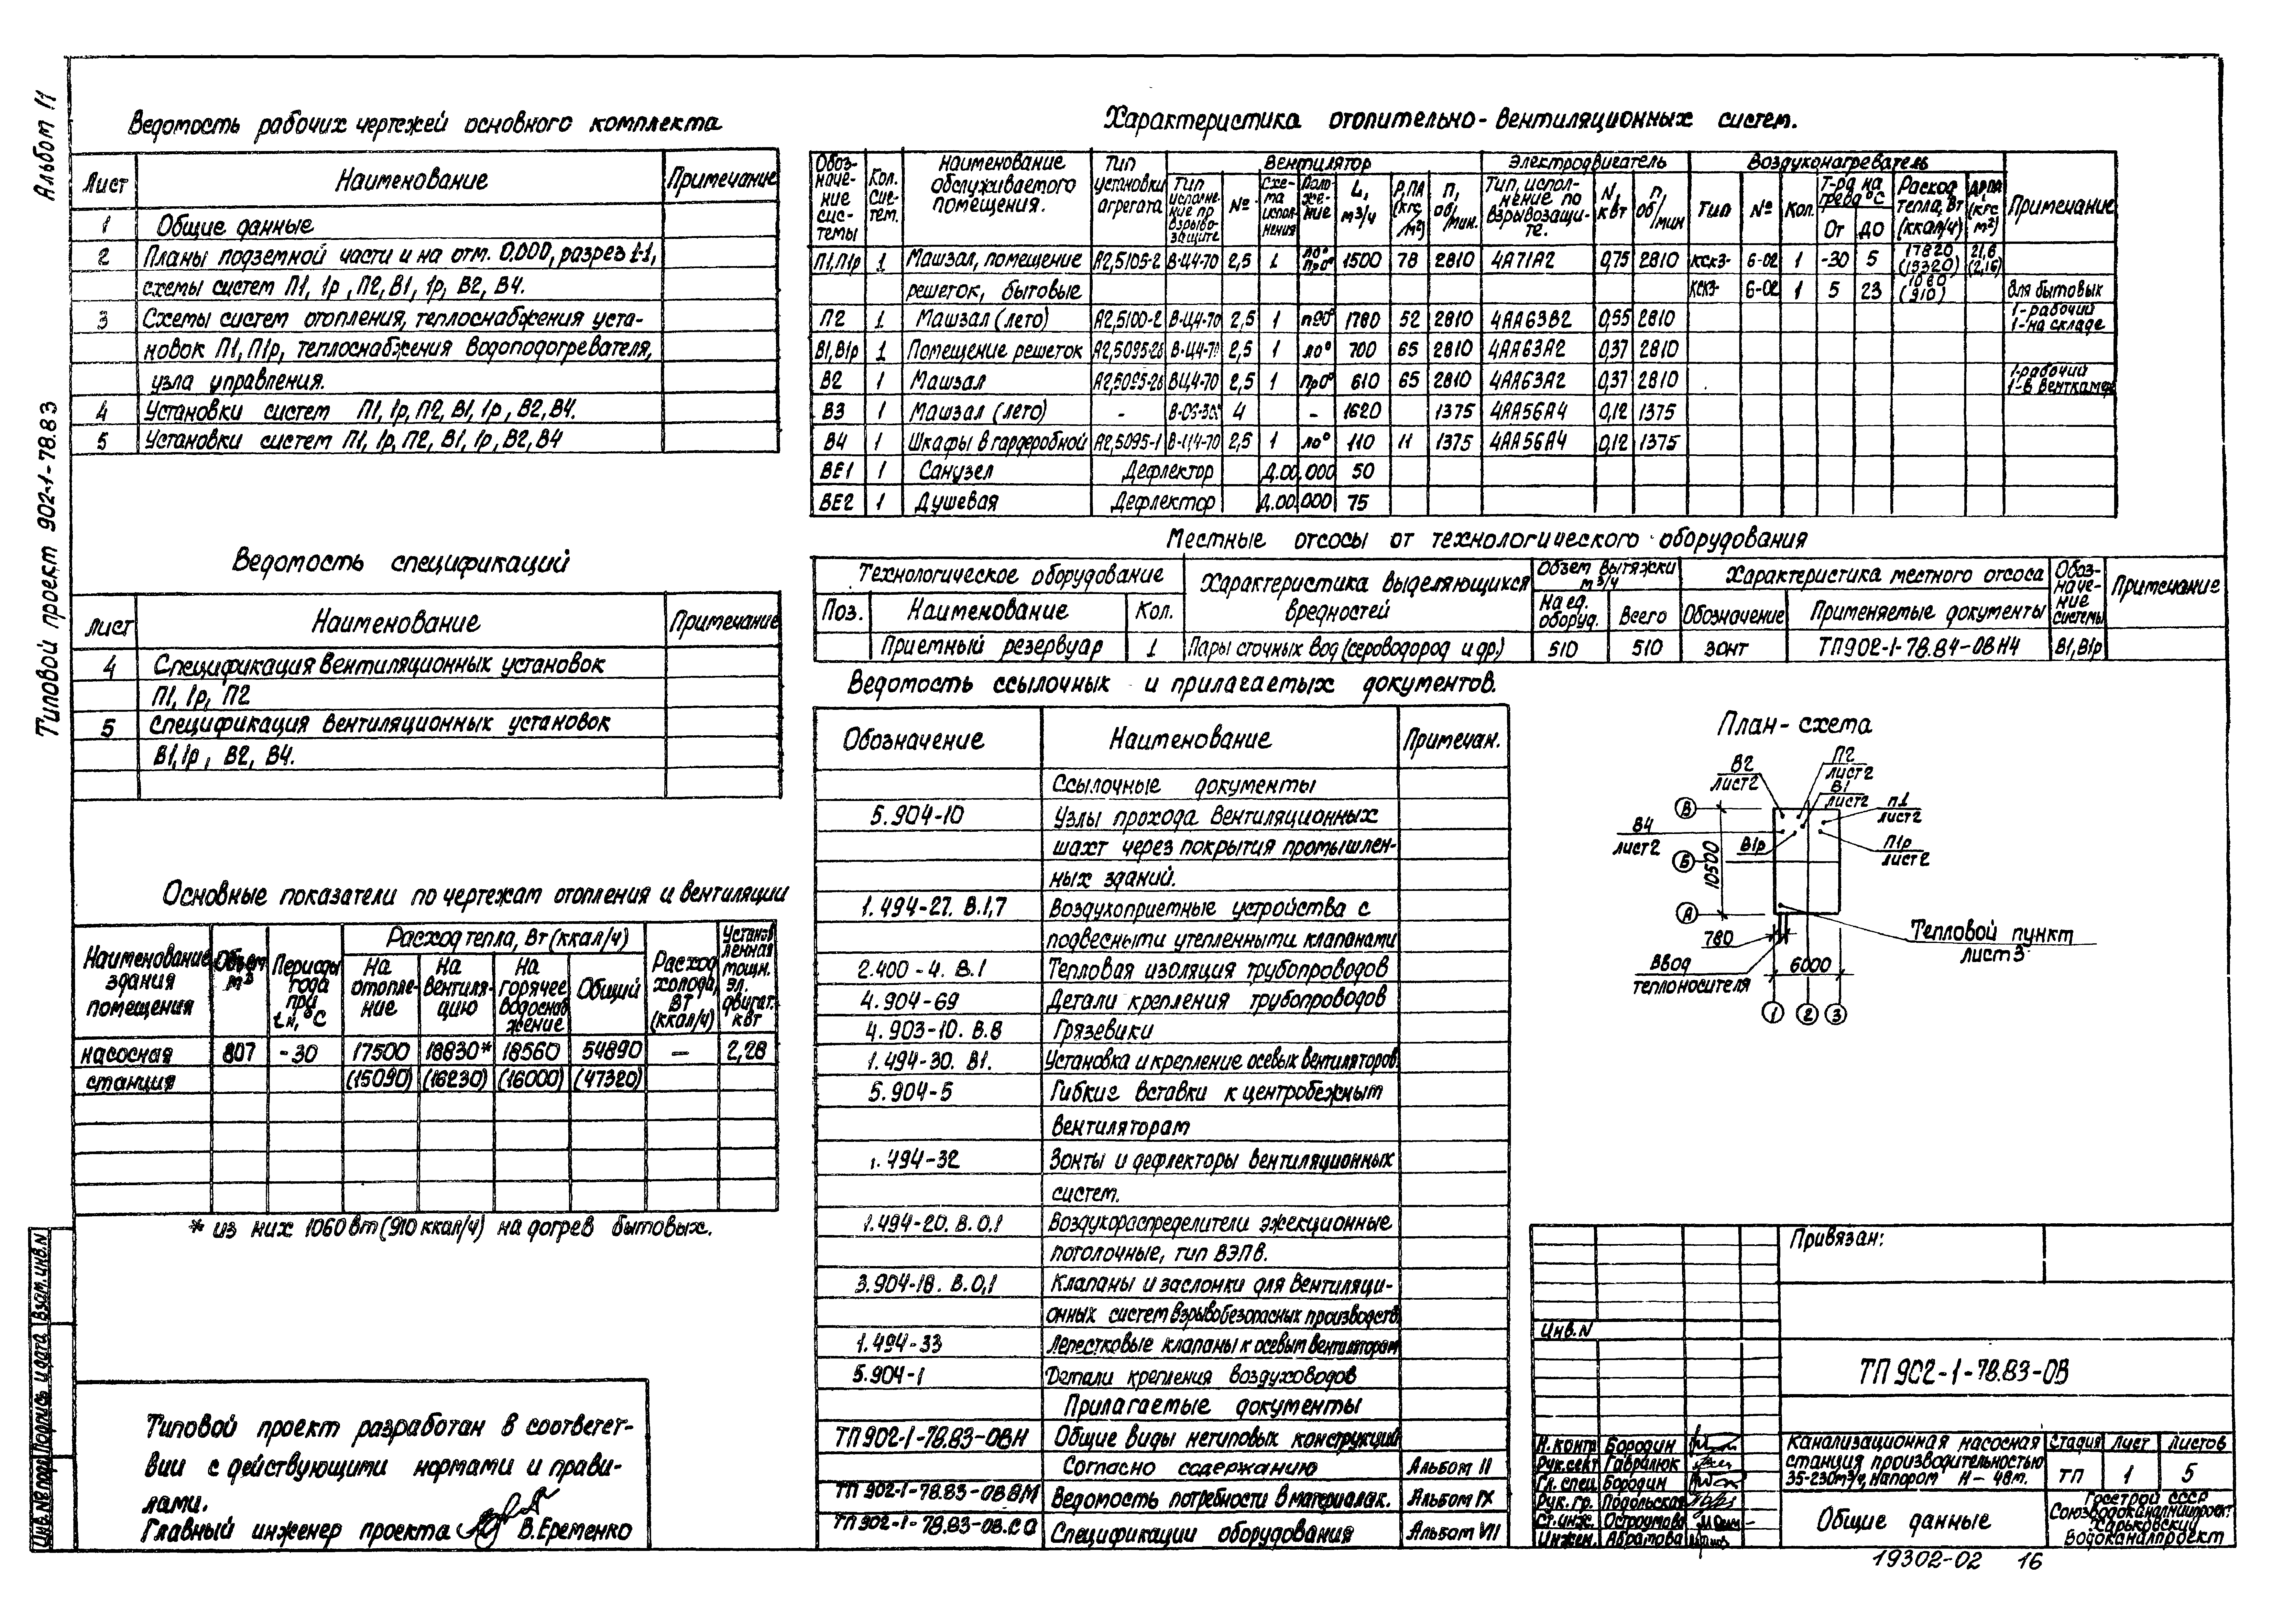 Альбом II
Типовой проект 902-1-78.83
Ведомость рабочих чертежей основного комплекта
Лист Наименование Примечание
1 Общие данные
2 Планы подземной части и на отм. 0.000, разрез 1-1,
схемы систем П1, 1р, П2, В1, 1р, В2, В4.
3 Схемы систем отопления, теплоснабжения уста-
новок П1, П1р, теплоснабжения водоподогревателя,
узла управления.
4 Установки систем П1, 1р, П2, В1, 1р, В2, В4.
5 Установки систем П1, 1р, П2, В1, 1р, В2, В4
Ведомость спецификаций
Лист Наименование Примечание
4 Спецификация вентиляционных установок
П1, 1р, П2
5 Спецификация вентиляционных установок
В1, 1р, В2, В4.
Основные показатели по чертежам отопления и вентиляции
Наименование здания помещения
Объем м3
Периоды года при tн, °С
Расход тепла, Вт (ккал/ч)
На отопле-ние
На вентиля-цию
На горячее водоснаб жение
Общий
Расход холода, Вт (ккал/ч)
Установ ленная мощн. эл. двигат. кВт
насосная 807 -30 17500 18830* 18560 54890 — 2,28
станция (15090) (16230) (16000) (47320)
* из них 1060 вт (910 ккал/ч) на догрев бытовых.
Типовой проект разработан в соответст-
вии с действующими нормами и прави-
лами.
Главный инженер проекта В.Еременко
Взам.инв.N
Подпись и дата
Инв.№ подл
Характеристика отопительно-вентиляционных систем.
Обоз-наче-ние сис-темы
Кол. сис-тем.
Наименование обслуживаемого помещения.
Тип установки агрегата
Вентилятор
Тип исполне-ние по взрыво-защите
№
Схе-ма испол-нения
Поло-же-ние
L, м3/ч
Р, ПА (кгс/м2)
п, об/мин.
Электродвигатель
Тип, испол-нение по взрывозащи-те.
N, кВт
п, об/мин
Воздухонагреватель
Тип
№
Кол.
Т-ра на грева °С
От до
Расход тепла, Вт (ккал/ч)
ΔР, ПА (кгс м2)
Примечание
П1, П1р 1 Машзал, помещение А2,5105-2 В-Ц4-70 2,5 1 Л0° Пр0° 1500 78 2810 4А71А2 0,75 2810 КСК3- 6-02 1 -30 5 17820 (15320) 21,6 (2,16)
решеток, бытовые КСК3- 6-02 1 5 23 1060 (910) для бытовых
П2 1 Машзал (лето) А2,5100-2 В-Ц4-70 2,5 1 П90° 1780 52 2810 4АА63В2 0,55 2810 1-рабочий 1-на складе
В1, В1р 1 Помещение решеток А2,5095-2б В-Ц4-70 2,5 1 Л0° 700 65 2810 4АА63А2 0,37 2810
В2 1 Машзал А2,5095-2б ВЦ4-70 2,5 1 Пр0° 610 65 2810 4АА63А2 0,37 2810 1-рабочий 1-в венткамер
В3 1 Машзал (лето) - В-06-300 4 - 1620 1375 4АА56А4 0,12 1375
В4 1 Шкафы в гардеробной А2,5095-1 В-Ц4-70 2,5 1 Л0° 110 11 1375 4АА56А4 0,12 1375
ВЕ1 1 Санузел Дефлектор Д.00.000 50
ВЕ2 1 Душевая Дефлектор Д.00.000 75
Местные отсосы от технологического оборудования
Технологическое оборудование
Поз. Наименование Кол.
Характеристика выделяющихся вредностей
Объем вытяжки м3/ч
На ед. оборуд. Всего
Характеристика местного отсоса
Обозначение Применяемые документы
Обоз-наче-ние системы
Примечание
Приемный резервуар 1 Пары сточных вод (сероводород и др.) 510 510 зонт ТП902-1-78.84-ОВН4 В1, В1р
Ведомость ссылочных и прилагаемых документов.
Обозначение Наименование Примечан.
Ссылочные документы
5.904-10 Узлы прохода вентиляционных
шахт через покрытия промышлен-
ных зданий.
1.494-27. В.1,7 Воздухоприемные устройства с
подвесными утепленными клапанами
2.400-4. В.1 Тепловая изоляция трубопроводов
4.904-69 Детали крепления трубопроводов
4.903-10. В.8 Грязевики
1.494-30. В1. Установка и крепление осевых вентиляторов
5.904-5 Гибкие вставки к центробежным
вентиляторам
1.494-32 Зонты и дефлекторы вентиляционных
систем.
1.494-20. В.0,1 Воздухораспределители эжекционные
потолочные, тип ВЭПВ.
3.904-18. В.0,1 Клапаны и заслонки для вентиляци-
онных систем взрывобезопасных производств
1.494-33 Лепестковые клапаны к осевым вентиляторам
5.904-1 Детали крепления воздуховодов
Прилагаемые документы
ТП902-1-78.83-ОВН Общие виды нетиповых конструкций
Согласно содержанию Альбом II
ТП 902-1-78.83-ОВВМ Ведомость потребности в материалах. Альбом IX
ТП902-1-78.83-ОВ.СО Спецификации оборудования Альбом VII
План-схема
В2 лист2
П2 лист2
В1 лист2
П1 лист2
В4 лист2
В1р
П1р лист2
В
Б
А
10500
780
6000
Тепловой пункт
лист3
Ввод
теплоносителя
1 2 3
Привязан:
Инв.N
ТП 902-1-78.83-ОВ
Н.контр Бородин
Рук.сект Гаврилюк
Гл. спец Бородин
Рук. гр. Подольская
Ст.инж. Остроумова
Инжен. Абратова
Канализационная насосная
станция производительностью
35-230м3/ч, напором Н-48м.
Стадия Лист Листов
ТП 1 5
Общие данные
Госстрой СССР
Союзводоканалниипроект
Харьковский
Водоканалпроект
19302-02 16